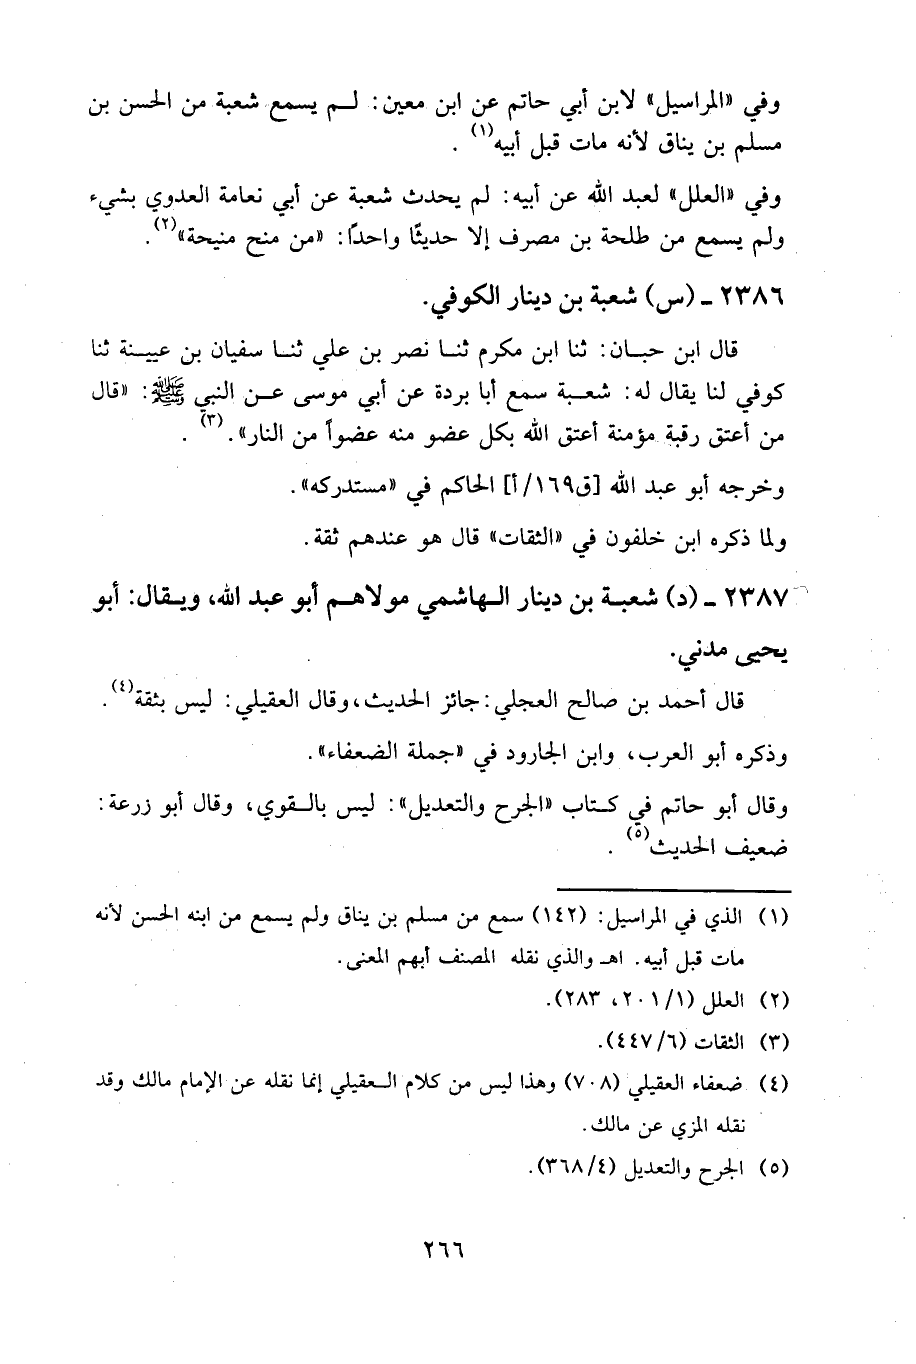 وفي «المراسيل» لابن أبي حاتم عن ابن معين: لـم يسمع شعبة من الحسن بن
مسلم بن يناق لأنه مات قبل أبيه(١) .
وفي «العلل» لعبد الله عن أبيه: لم يحدث شعبة عن أبي نعامة العدوي بشيء
ولم يسمع من طلحة بن مصرف إلا حديثًا واحدًا: «من منح منيحة»(٢).
٢٣٨٦ ـ (س) شعبة بن دينار الكوفي.
قال ابن حبـان: ثنا ابن مكرم ثنـا نصر بن علي ثنـا سفيان بن عييـنة ثنا
كوفي لنا يقال له: شعـبة سمع أبا بردة عن أبي موسى عـن النبي ﷺ: «قال
من أعتق رقبة مؤمنة أعتق الله بكل عضو منه عضواً من النار».(٣) .
وخرجه أبو عبد الله [ق١٦٩/أ] الحاكم في «مستدركه».
ولما ذكره ابن خلفون في «الثقات» قال هو عندهم ثقة.
٢٣٨٧ ـ (د) شعبـة بن دينار الـهاشمي مولاهـم أبو عبد الله، ويـقال: أبو
يحيى مدني.
قال أحمد بن صالح العجلي: جائز الحديث، وقال العقيلي: ليس بثقة(٤).
وذكره أبو العرب، وابن الجارود في «جملة الضعفاء».
وقال أبو حاتم في كـتاب «الجرح والتعديل»: ليس بالـقوي، وقال أبو زرعة:
ضعيف الحديث(٥) .
(١) الذي في المراسيل: (١٤٢) سمع من مسلم بن يناق ولم يسمع من ابنه الحسن لأنه
مات قبل أبيه. اهـ والذي نقله المصنف أبهم المعنى.
(٢) العلل (٢٠١/١، ٢٨٣).
(٣) الثقات (٤٤٧/٦).
(٤) ضعفاء العقيلي (٧٠٨) وهذا ليس من كلام الـعقيلي إنما نقله عن الإمام مالك وقد
نقله المزي عن مالك.
(٥) الجرح والتعديل (٣٦٨/٤).
٢٦٦